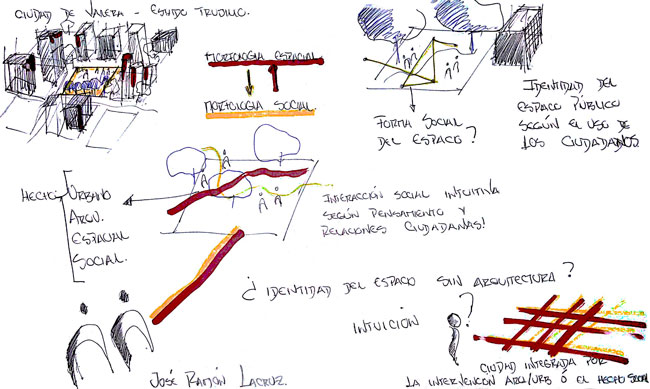 CIUDAD DE VALERA - ESTADO TRUJILLO.
MORFOLOGIA ESPACIAL
MORFOLOGIA SOCIAL.
FORMA SOCIAL
DEL ESPACIO?
IDENTIDAD DEL
ESPACIO PÚBLICO
SEGÚN EL USO DE
LOS CIUDADANOS
HECHO URBANO
ARQU.
ESPACIAL
SOCIAL.
INTERACCIÓN SOCIAL INTUITIVA
SEGÚN PENSAMIENTO Y
RELACIONES CIUDADANAS!
¿IDENTIDAD DEL ESPACIO SIN ARQUITECTURA?
INTUICIÓN ?
CIUDAD INTEGRADA POR
LA INTERVENCIÓN ARQ/URB Ó EL HECHO SOCIAL
JOSÉ RAMÓN LACRUZ.